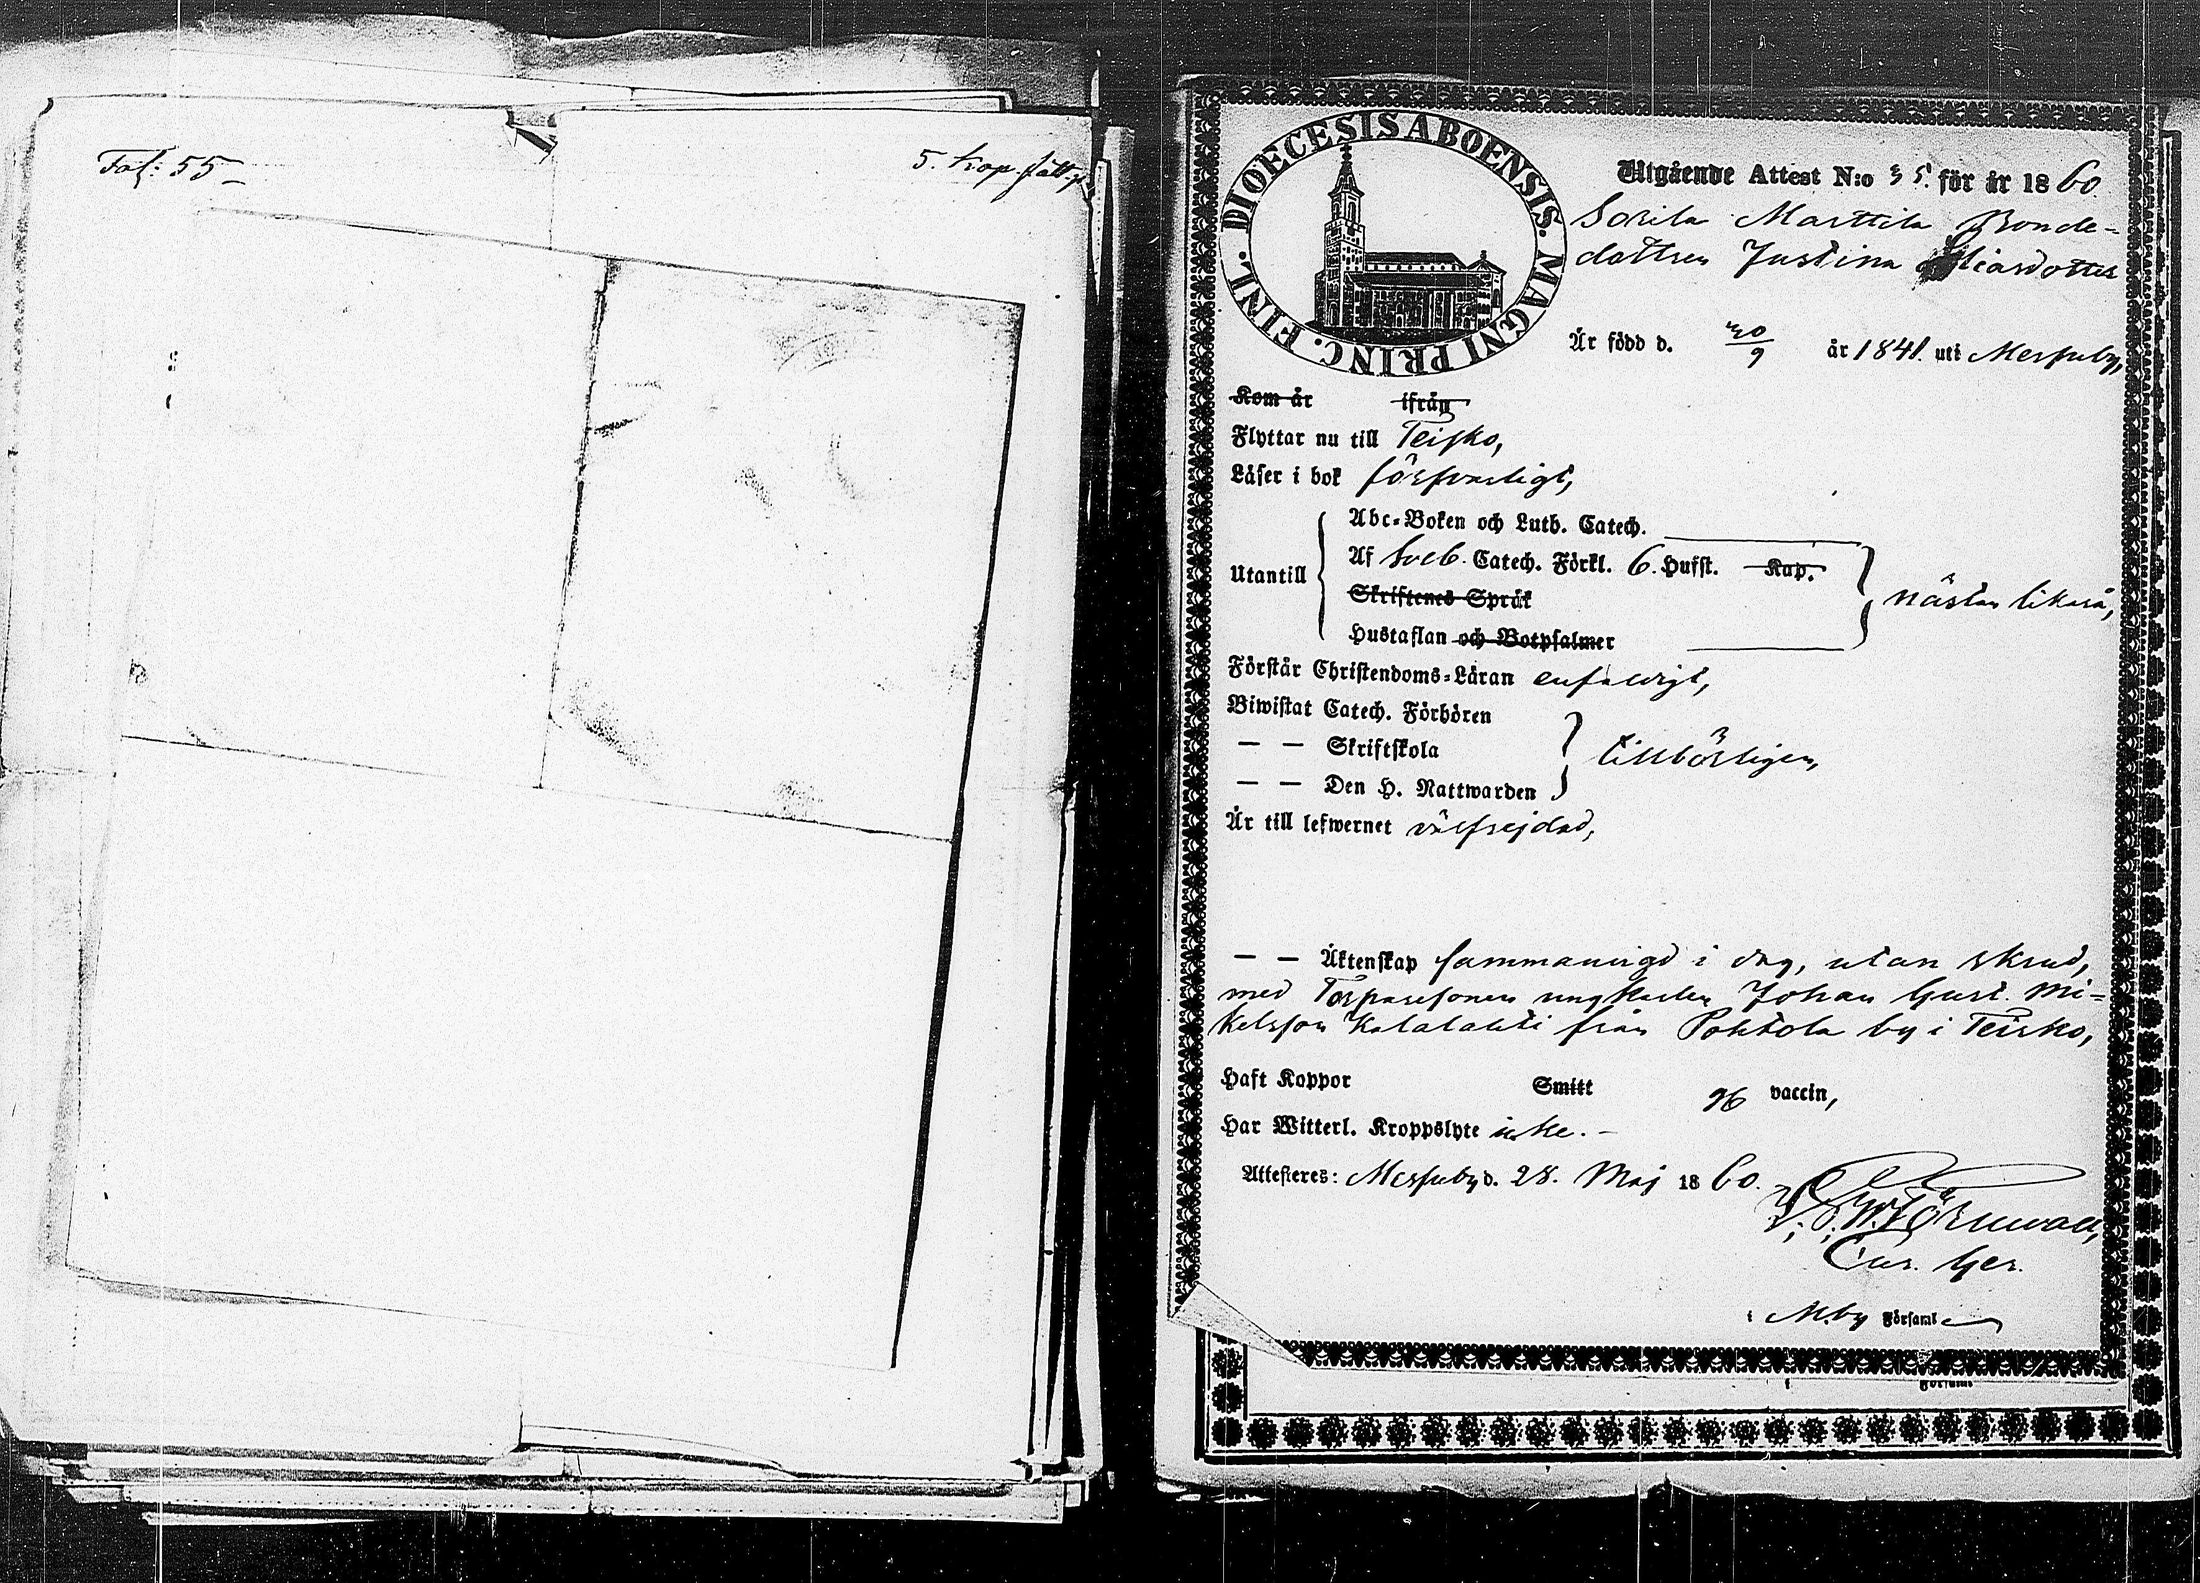 Fol: 55
5. Kop.
DIOECESIS ABOENSIS. MAGNI PRINC. FINL.
Utgående Attest N:o 35. för år 1860.
Sorila Marttila Bonde-
dottren Justina Eliasdotter
År född d. 30/9 år 1841. uti Messuby,
Kom år ifrån
Flyttar nu till Teisko,
Läser i bok försvarligt,
Abc-Boken och Luth. Catech.
Utantill
Af Sveb. Catech. Förkl. 6. Hufst. Kap.
Skriftenes Språk
nästan likaså,
Hustaflan och Botpsalmer
Förstår Christendoms-Läran enfaldigt,
Biwistat Catech. Förhören
— — Skriftskola
tillbörligen,
— — Den H. Nattwarden
Är till lefwernet välfrejdad,
— — Äktenskap sammanvigd i dag, utan skrud,
med Torparesonen ungkarlen Johan Gust. Mi-
kelsson Kalalahti från Pohtola by i Teisko,
Haft Koppor Smitt vaccin,
Har Witterl. Kroppslyte icke. –
Attesteres: Messuby d. 28. Maj 1860.
Törnwall,
Cur. Ger.
i M.by Församl
Församl